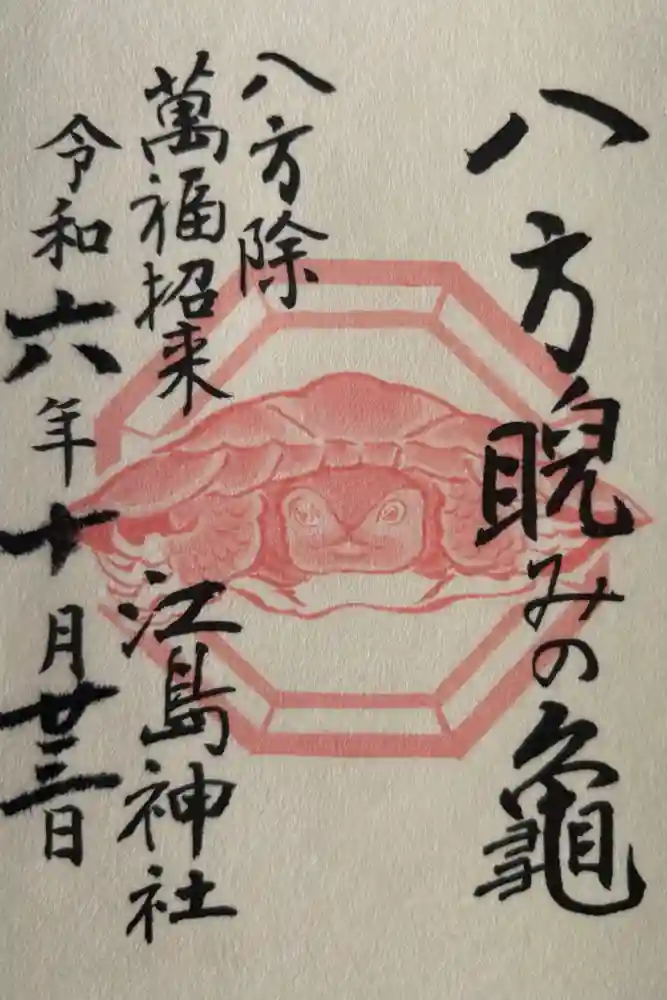 八方睨みの龜
八方除
萬福招来
江島神社
令和六年十月廿三日